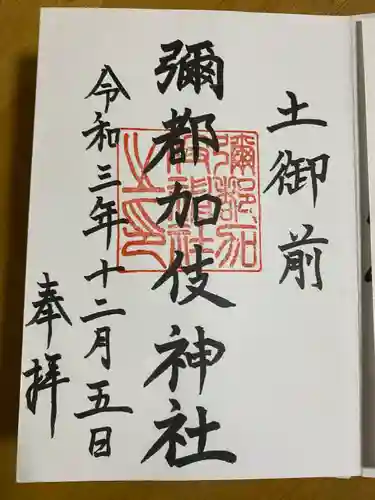 土御前
彌都加伎神社
令和三年十二月五日
奉拝
彌都加
伎神社
之印